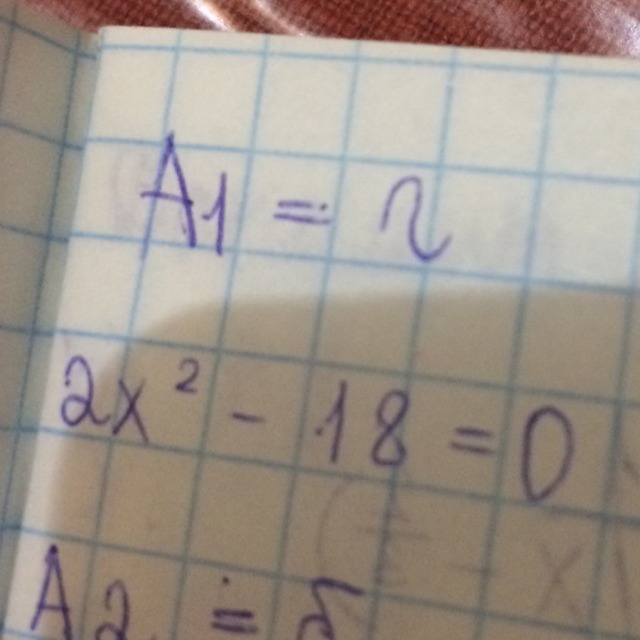 A1 = 2
2x² - 18 = 0
A2 = 5